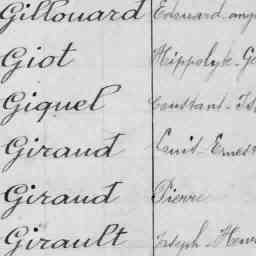 Gillouard Edouard
Giot Hippolyte
Giquel Constant
Giraud Louis Ernest
Giraud Pierre
Girault Joseph Henri